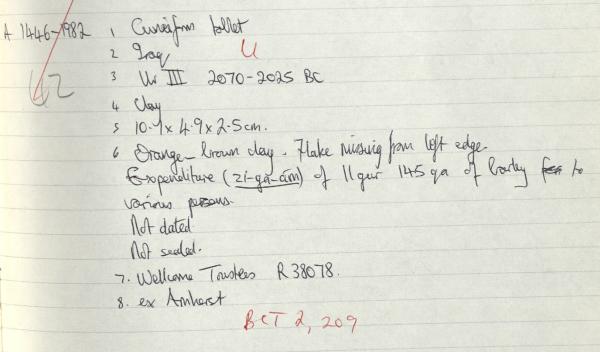 A 1446-1982 1 Cuneiform tablet
2 Iraq U
3 Ur III 2070-2025 BC
42
4 Clay
5 10.9 x 4.9 x 2.5cm.
6 Orange-brown clay. Flake missing from left edge.
Expenditure (zi-ga-àm) of 11 gur 145 qa of barley to
various persons.
Not dated
Not sealed.
7. Wellcome Trustees R 38078.
8. ex Amherst
BCT 2, 209